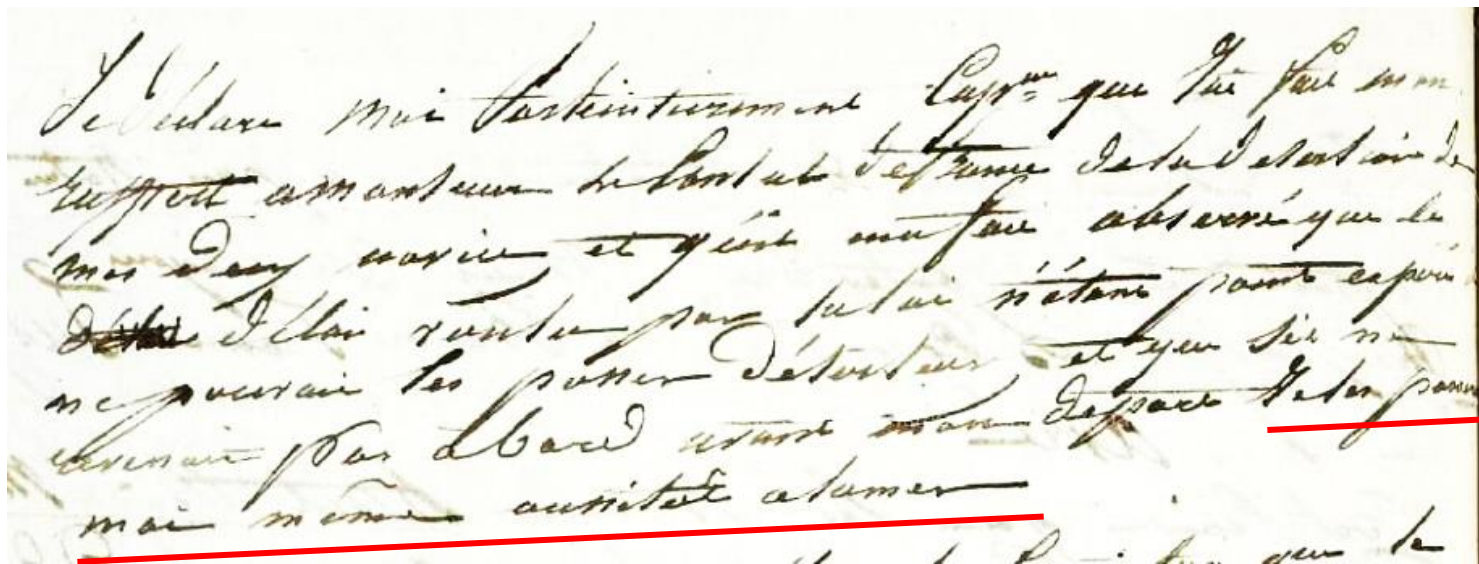 Je déclare moi Capne que J'ai fait mon
rapport a monsieur le Consul de france de la désertion de
mes deux novices et qu'ont ma fait observé que le
délai voulu par la loi n'étant point expiré
ne pouvait les passer déserteur, et que s'ils ne
revenait pas abord avant mon départ Je les passe
moi même aussitôt alamer
que le